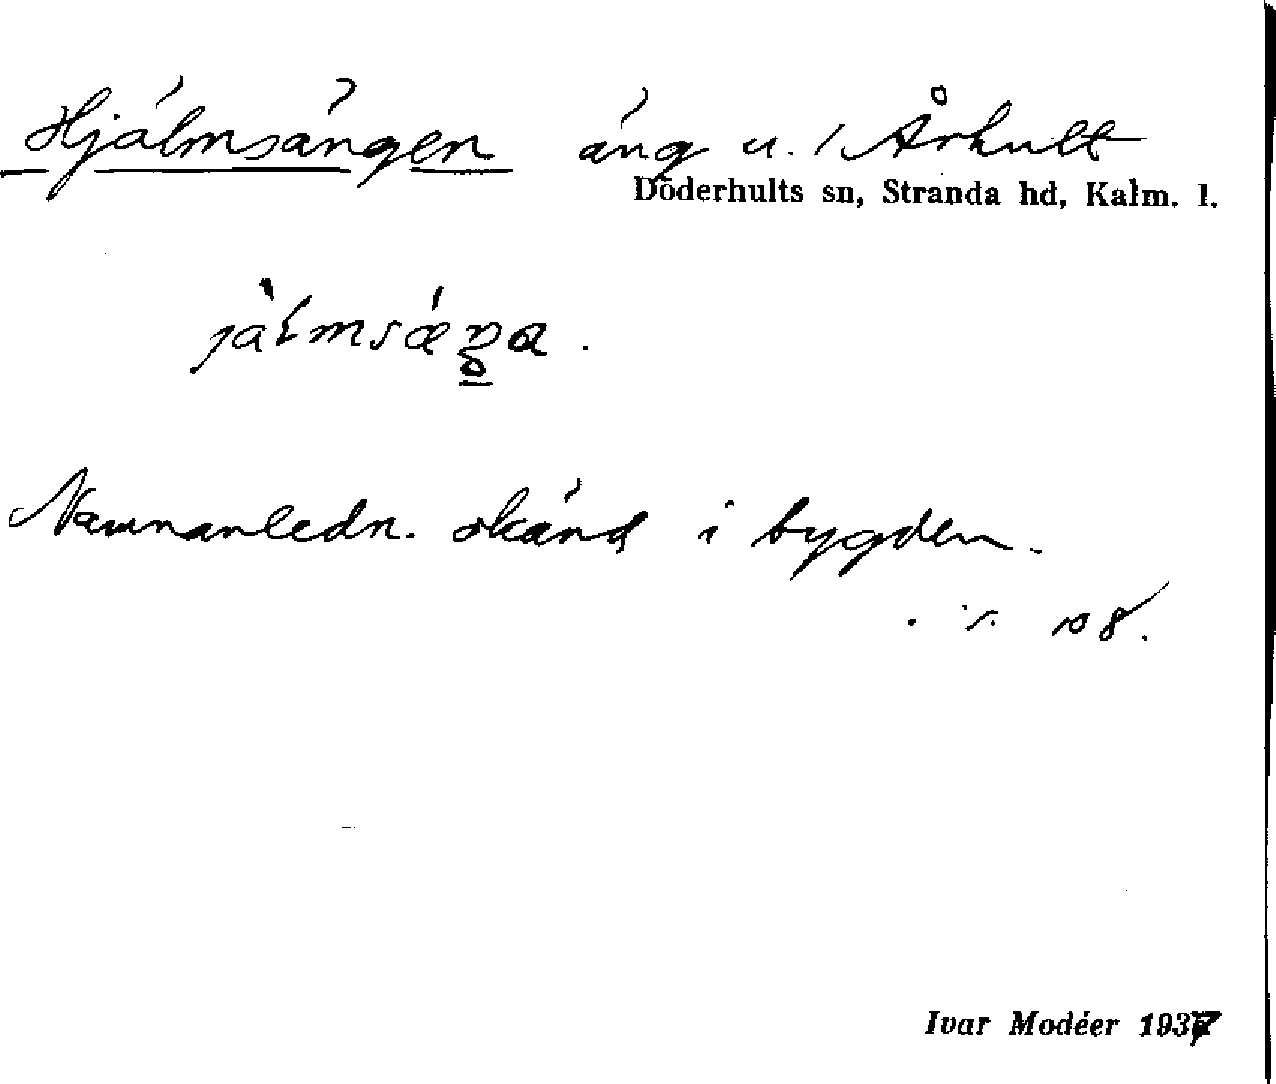 Hjälmsängen äng u. Århult
Döderhults sn, Stranda hd, Kalm. l.
Namnanledn. okänd i bygden.
108.
Ivar Modéer 1937